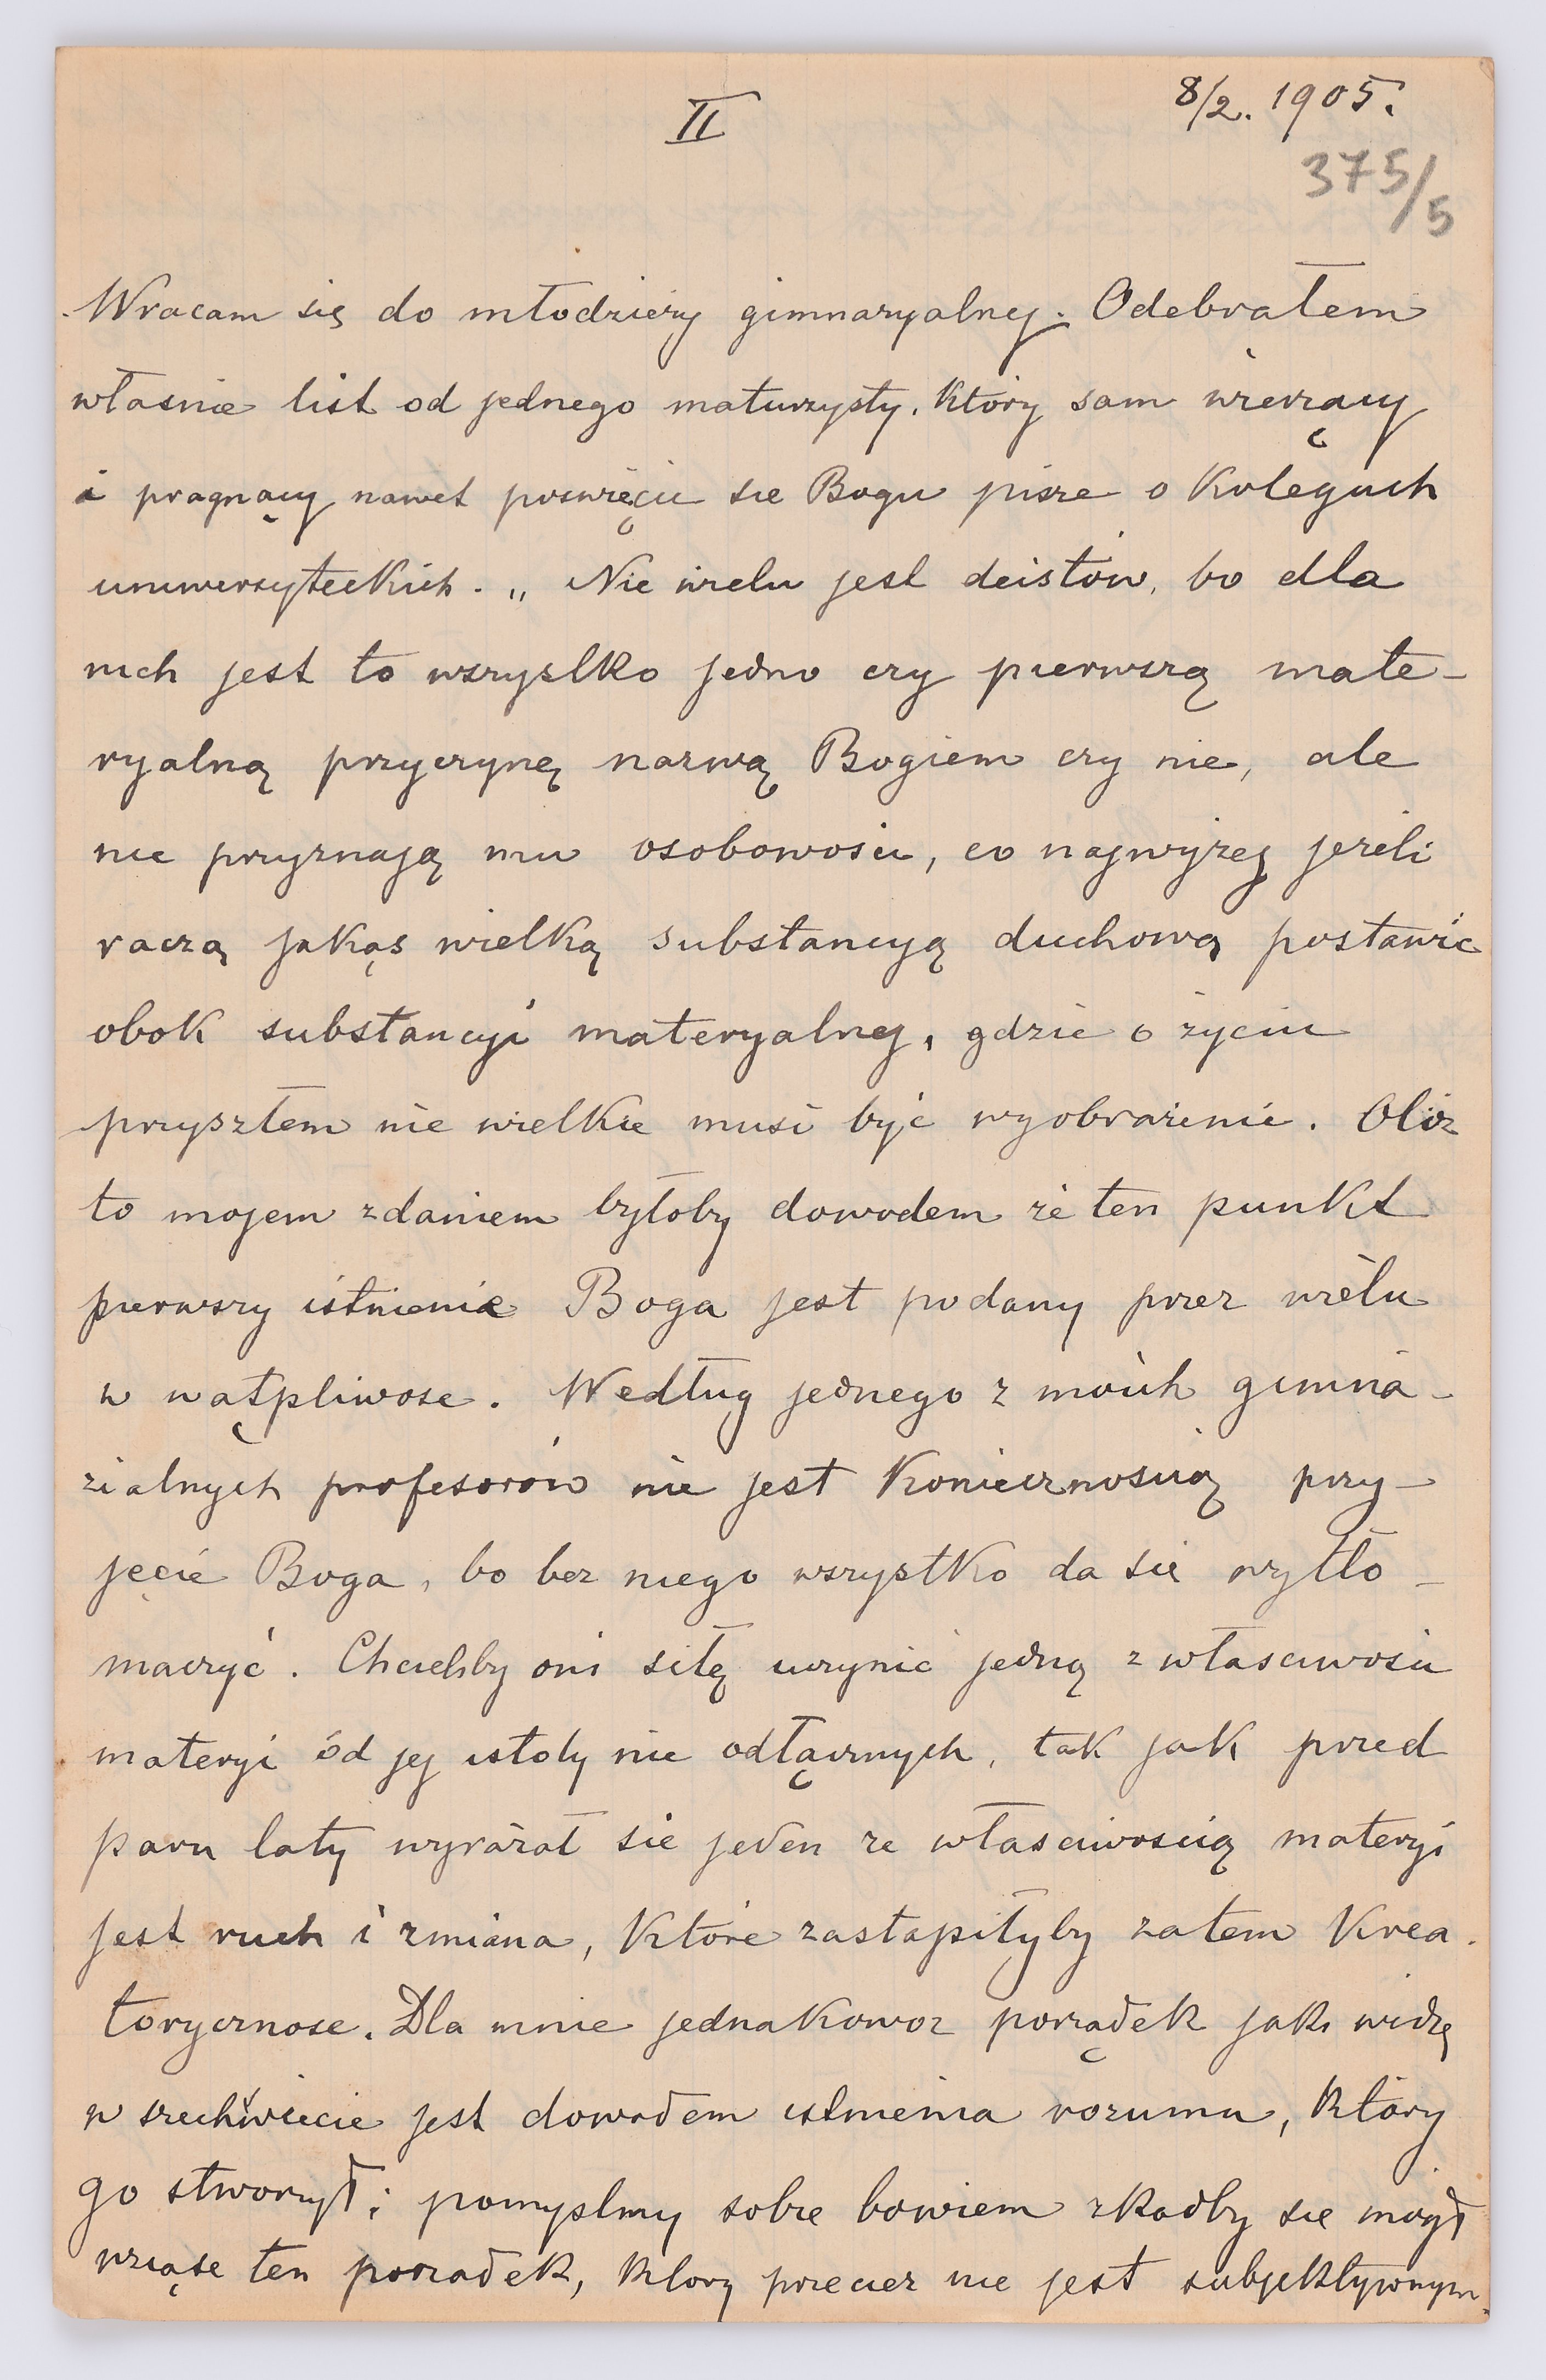 II
8/2. 1905.
375/5
Wracam się do młodzieży gimnazyalnej. Odebrałem
własnie list od jednego maturzysty, który sam wierzący
i pragnący nawet poswięcic sie Bogu pisze o kolegach
uniwersyteckich. „Nie wielu jest deistów, bo dla
nich jest to wszystko jedno czy pierwszą mate-
ryalną przyczynę nazwą Bogiem czy nie, ale
nie przyznają mu osobowosci, co najwyżej jeżeli
raczą jakąs wielką substancyą duchową postawić
obok substancyi materyalnej, gdzie o życiu
przyszłem nie wielkie musi być wyobrażenie. Otóz
to mojem zdaniem byłoby dowodem że ten punkt
pierwszy istnienie Boga jest podany przez wielu
w wątpliwosc. Według jednego z moich gimna-
zialnych profesorów nie jest koniecznoscią przy-
jęcie Boga, bo bez niego wszystko da się wytło-
maczyć. Chcieliby oni siłę uczynić jedną z własciwosci
materyi od jej istoty nie odłącznych, tak jak przed
paru laty wyrażał sie jeden ze własciwoscią materyi
jest ruch i zmiana, które zastąpiłyby zatem krea-
torycznosc. Dla mnie jednakowoz porządek jaki widzę
w szechświecie jest dowodem istnienia rozumu, który
go stworzył; pomyslmy sobie bowiem zkadby się mógł
wziąsc ten porzadek, ktory przeciez nie jest subjektywnym.